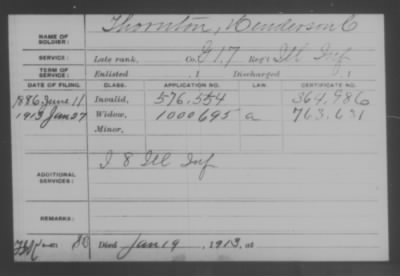 NAME OF SOLDIER: Thornton, Henderson C
SERVICE: Late rank, Co. G 17 Reg't Ill Inf
TERM OF SERVICE: Enlisted , 1 Discharged , 1
DATE OF FILING. CLASS. APPLICATION NO. LAW. CERTIFICATE NO.
1886, June 11 Invalid, 576.554 364.986
1913 Jan 27 Widow, 1000695 a 763.631
Minor,
ADDITIONAL SERVICES: I 8 Ill Inf
REMARKS:
Died Jan 19, 1913, at